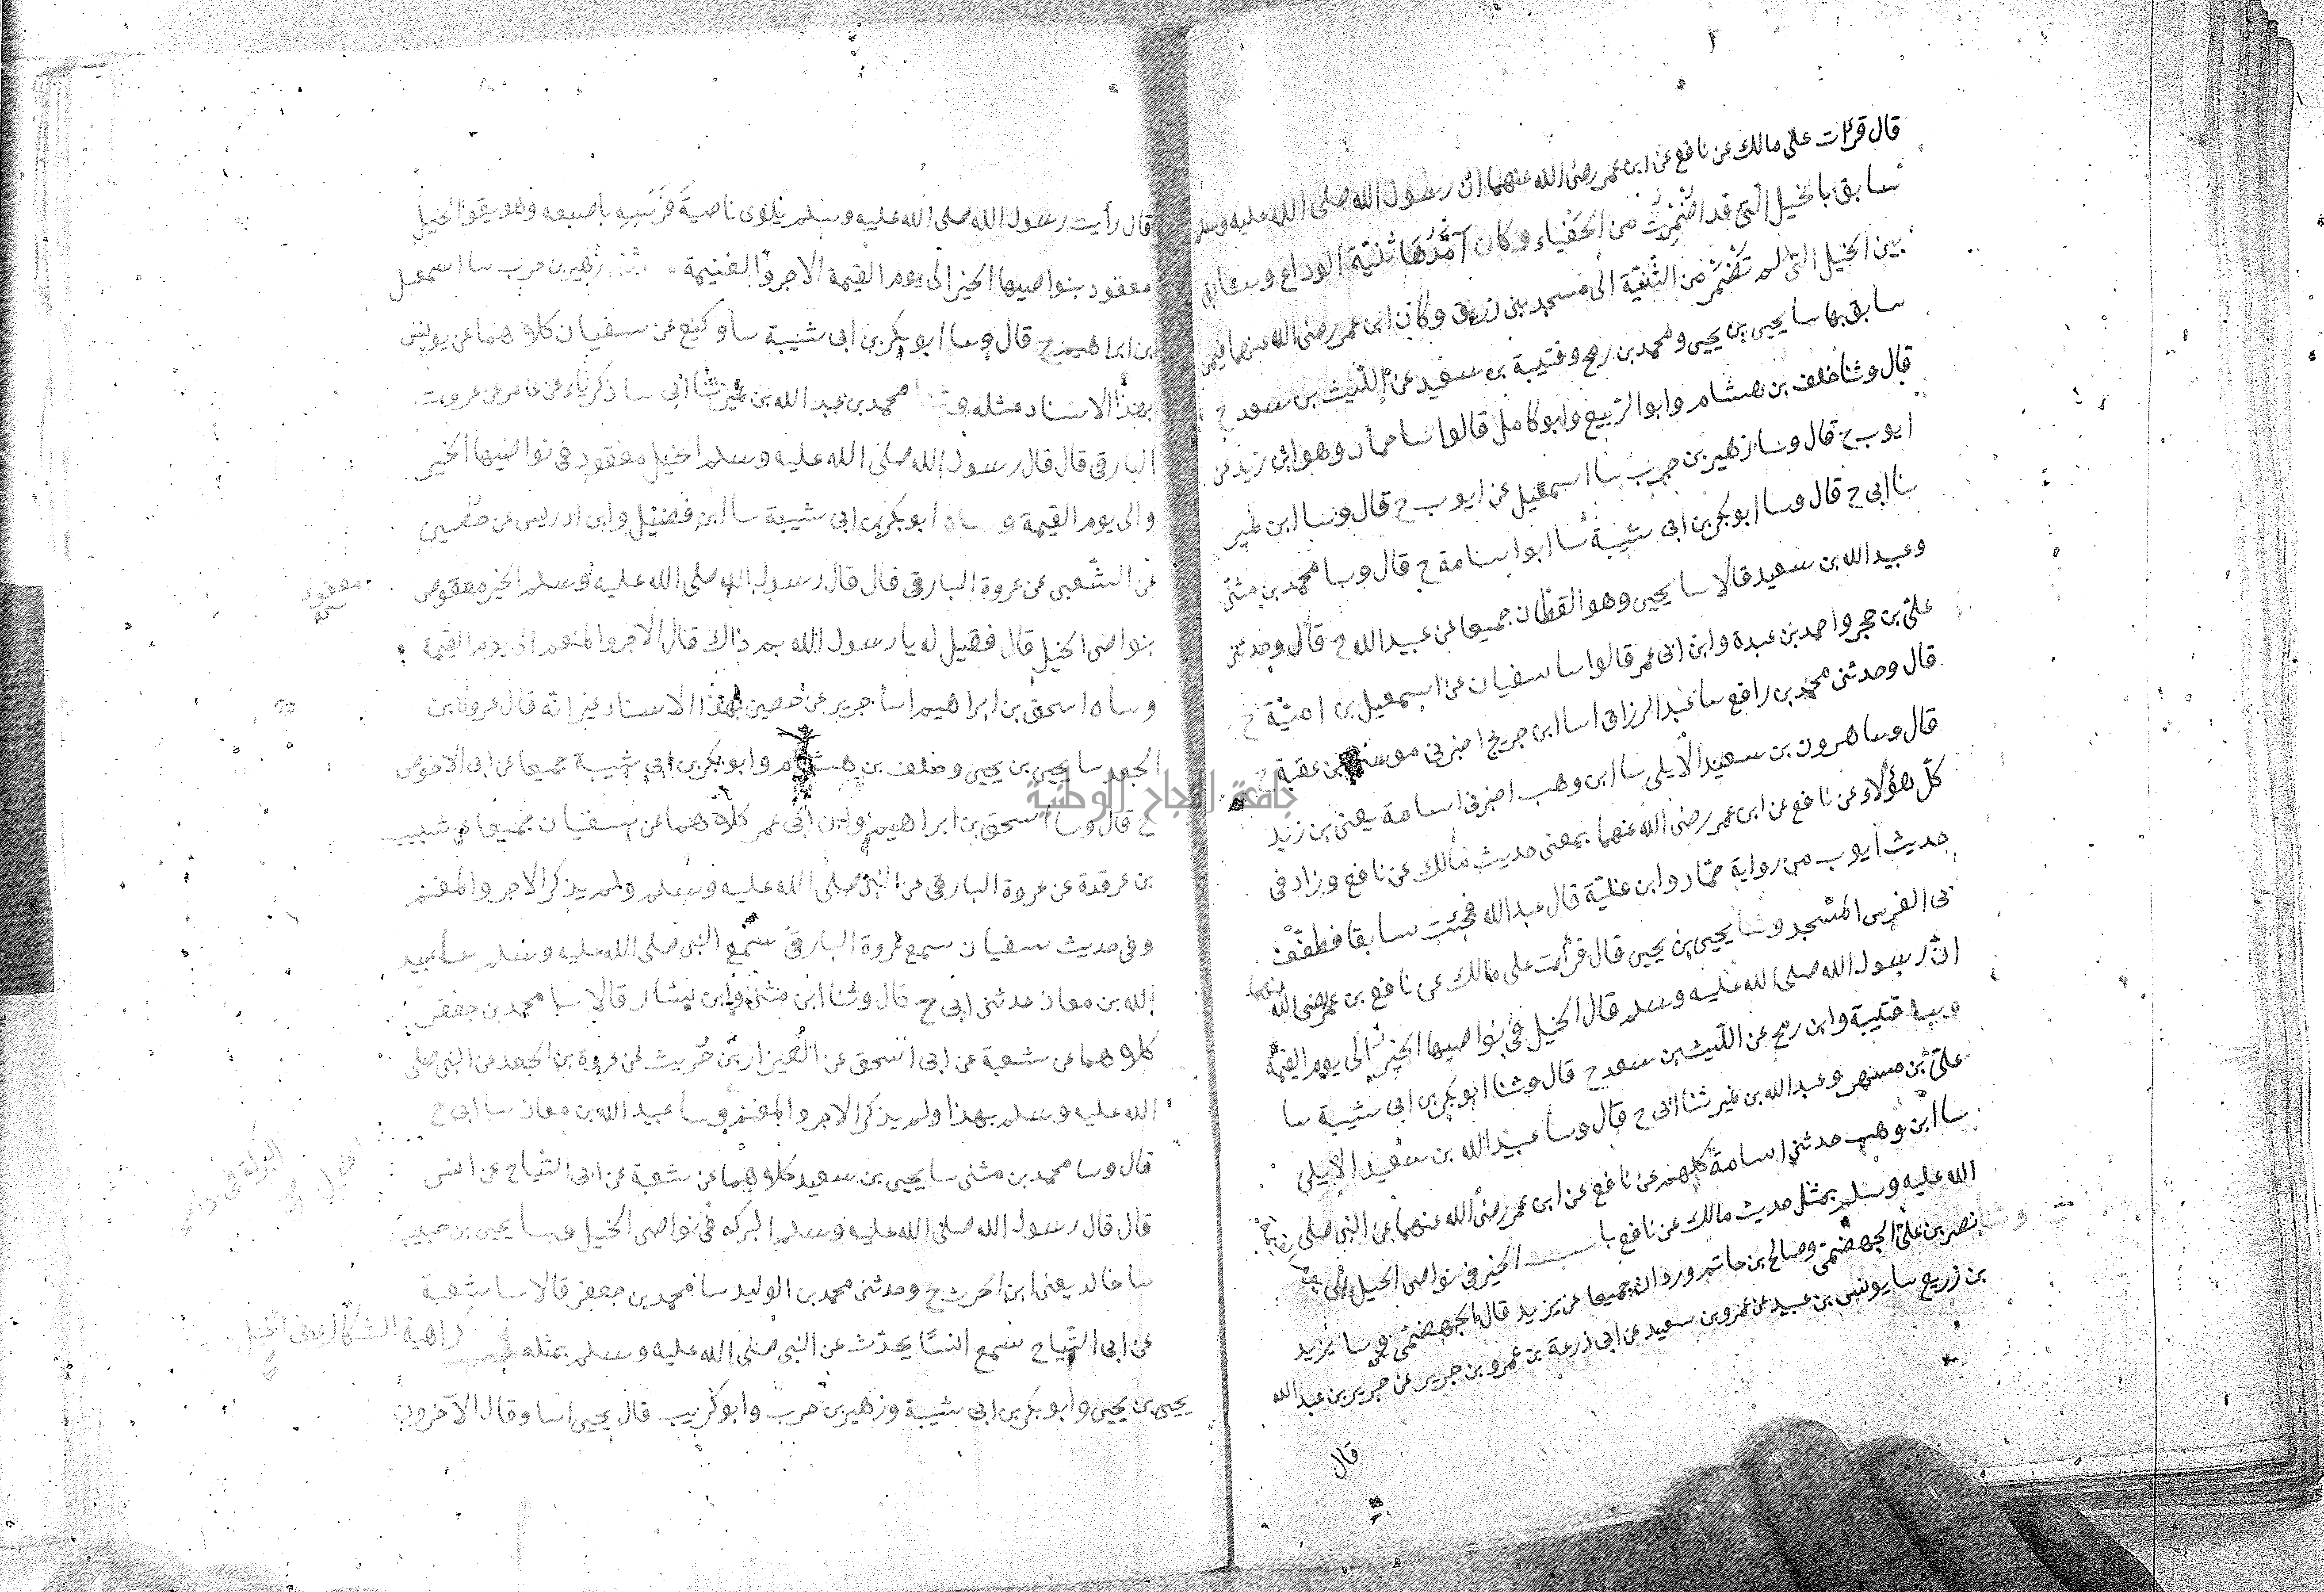 قال قرأت على مالك عن نافع عن ابن عمر رضى الله عنهما ان رسول الله صلى الله عليه وسلم
سابق بالخيل التى قد اضمرت من الحفياء وكان امدها ثنية الوداع وسابق
بين الخيل التى لم تضمر من الثنية الى مسجد بنى زريق وكان ابن عمر رضى الله عنهما فيمن
سابق بها سا يحيى بن يحيى ومحمد بن رمح وقتيبة بن سعيد عن الليث بن سعد ح
قال وثنا خلف بن هشام وابو الربيع وابو كامل قالوا سا حماد وهو ابن زيد عن
ايوب ح قال وسا زهير بن حرب سا اسمعيل عن ايوب ح قال وسا ابن نمير
سا ابى ح قال وسا ابو بكر بن ابى شيبة سا ابو اسامة ح قال وسا محمد بن مثنى
وعبيد الله بن سعيد قالا سا يحيى وهو القطان جميعا عن عبيد الله ح قال وحدثنى
على بن حجر واحمد بن عبدة وابن ابى عمر قالوا سا سفيان عن اسمعيل بن امية ح
قال وحدثنى محمد بن رافع سا عبد الرزاق اسا ابن جريج اخبرنى موسى بن عقبة ح
قال وسا هرون بن سعيد الايلى سا ابن وهب اخبرنى اسامة يعنى بن زيد
كل هؤلاء عن نافع عن ابن عمر رضى الله عنهما بمعنى حديث مالك عن نافع وزاد فى
حديث ايوب من رواية حماد وابن علية قال عبد الله فجئت سابقا فطفف
بى الفرس المسجد وثنا يحيى بن يحيى قال قرأت على مالك عن نافع بن عمر رضى الله عنهما
ان رسول الله صلى الله عليه وسلم قال الخيل فى نواصيها الخير الى يوم القيمة
وسا قتيبة وابن رمح عن الليث بن سعد ح قال وثنا ابو بكر بن ابى شيبة سا
على بن مسهر وعبد الله بن نمير ثنا ابى ح قال وسا عبيد الله بن سعيد الايلى
سا ابن وهب حدثنى اسامة كلهم عن نافع عن ابن عمر رضى الله عنهما عن النبى صلى
الله عليه وسلم بمثل حديث مالك عن نافع باب الخير فى نواصى الخيل الى يوم القيمة
وثنا نصر بن على الجهضمى وصالح بن حاتم وردان جميعا عن يزيد قال الجهضمى وسا يزيد
بن زريع سا يونس بن عبيد عن عمرو بن سعيد عن ابى زرعة بن عمرو بن جرير عن جرير بن عبد الله
قال
قال رأيت رسول الله صلى الله عليه وسلم يلوى ناصية فرسه باصبعه وهو يقول الخيل
معقود بنواصيها الخير الى يوم القيمة الاجر والغنيمة زهير بن حرب سا اسمعيل
بن ابراهيم ح قال وسا ابو بكر بن ابى شيبة سا وكيع عن سفيان كلاهما عن يونس
بهذا الاسناد مثله وثنا محمد بن عبد الله بن نمير ثنا ابى سا زكرياء عن عامر عن عروت
البارقى قال قال رسول الله صلى الله عليه وسلم الخيل معقود فى نواصيها الخير
والى يوم القيمة وساه ابو بكر بن ابى شيبة سا ابن فضيل وابن ادريس عن حصين
عن الشعبى عن عروة البارقى قال قال رسول الله صلى الله عليه وسلم الخير معقوص
معقود
بنواصى الخيل قال فقيل له يا رسول الله بم ذاك قال الاجر والمغنم الى يوم القيمة
وساه اسحق بن ابراهيم اسا جرير عن حصين بهذا الاسناد غير انه قال عروة بن
الجعد سا يحيى بن يحيى وخلف بن هشام وابو بكر بن ابى شيبة جميعا عن ابى الاحوص
ح قال وسا اسحق بن ابراهيم وابن ابى عمر كلاهما عن سفيان جميعا عن شبيب
جامعة النجاح الوطنية
بن غرقدة عن عروة البارقى عن النبى صلى الله عليه وسلم ولم يذكر الاجر والمغنم
وفى حديث سفيان سمع عروة البارقى سمع النبى صلى الله عليه وسلم سا عبيد
الله بن معاذ حدثنى ابى ح قال وثنا ابن مثنى وابن بشار قالا سا محمد بن جعفر
كلاهما عن شعبة عن ابى اسحق عن العيزار بن حريث عن عروة بن الجعد عن النبى صلى
الله عليه وسلم بهذا ولم يذكر الاجر والمغنم وسا عبيد الله بن معاذ سا ابى ح
البركة فى نواصى
الخيل
قال وسا محمد بن مثنى سا يحيى بن سعيد كلاهما عن شعبة عن ابى التياح عن انس
قال قال رسول الله صلى الله عليه وسلم البركه فى نواصى الخيل وسا يحيى بن حبيب
سا خالد يعنى ابن الحرث ح وحدثنى محمد بن الوليد سا محمد بن جعفر قالا سا شعبة
كراهية الشكال فى الخيل
عن ابى التياح سمع انسا يحدث عن النبى صلى الله عليه وسلم بمثله
يحيى بن يحيى وابو بكر بن ابى شيبة وزهير بن حرب وابو كريب قال يحيى اسا وقال الآخرون